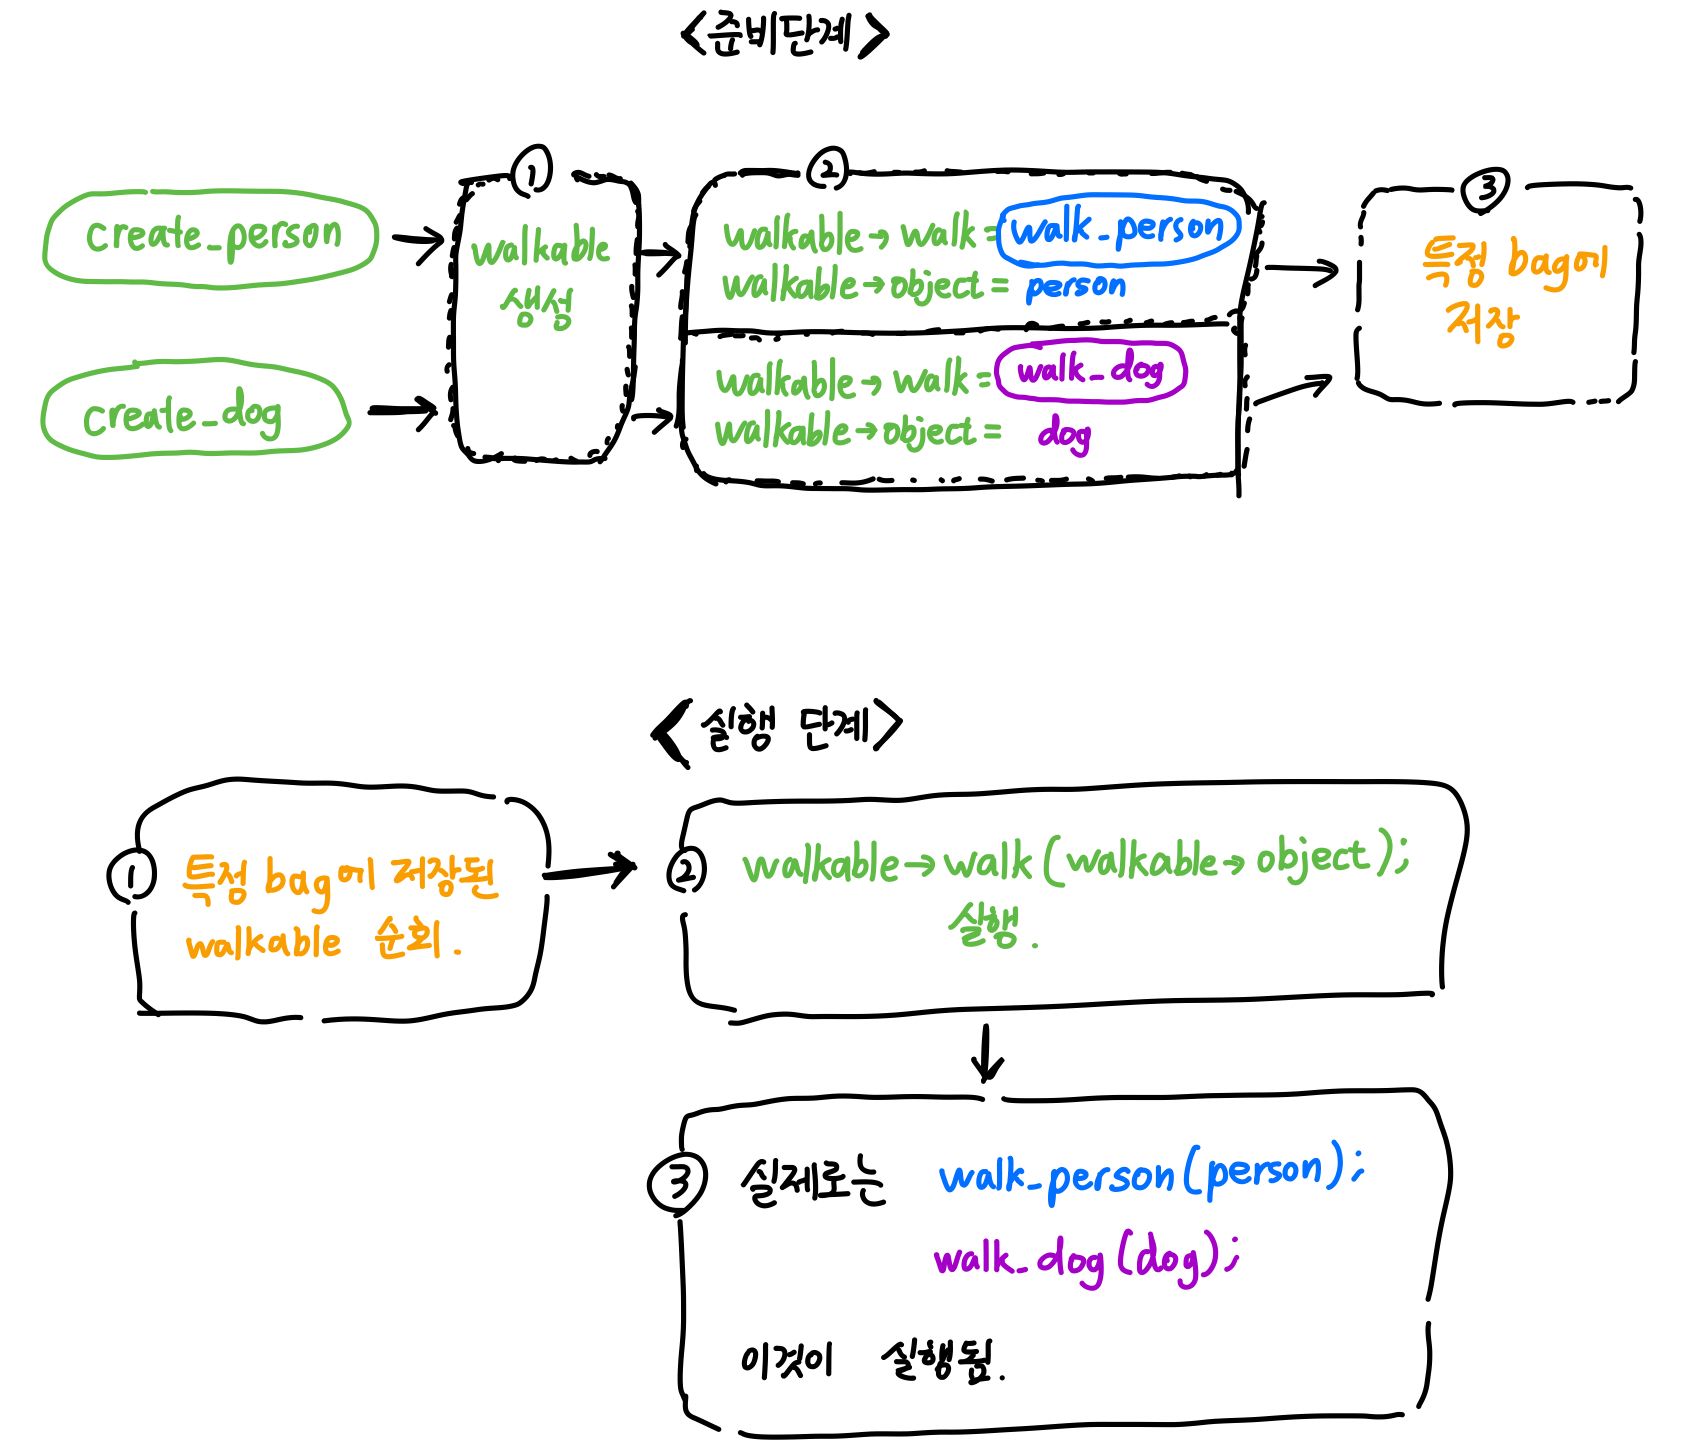 <준비단계>
create_person
create_dog
①
walkable
생성
②
walkable→walk = walk_person
walkable→object = person
walkable→walk = walk_dog
walkable→object = dog
③
특정 bag에
저장
<실행 단계>
①
특정 bag에 저장된
walkable 순회.
②
walkable→walk(walkable→object);
실행.
③
실제로는 walk_person(person);
walk_dog(dog);
이것이 실행됨.